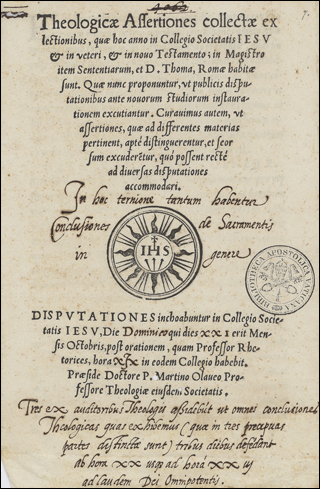 4062
7.
Theologicæ Assertiones collectæ ex
lectionibus, quæ hoc anno in Collegio Societatis IESV
& in veteri, & in nouo Testamento; in Magistro
item Sententiarum, et D. Thoma, Romæ habitæ
sunt. Quæ nunc proponuntur, vt publicis dispu-
tationibus ante nouorum studiorum instaura-
tionem excutiantur. Curauimus autem, vt
assertiones, quæ ad differentes materias
pertinent, aptè distinguerentur, et seor
sum excuderētur, quò possent rectè
ad diuersas disputationes
accommodari.
In hoc ternione tantum habentur
Conclusiones de Sacramentis
in genere
IHS
BIBLIOTHECA APOSTOLICA VATICANA
DISPVTATIONES inchoabuntur in Collegio Socie-
tatis IESV, Die Dominico qui dies xxi erit Men-
sis Octobris, post orationem, quam Professor Rhe-
torices, hora in eodem Collegio habebit.
Præside Doctore P. Martino Olauco Pro-
fessore Theologiæ eiusdem Societatis.
Tres ex auditoribus Theologis assidebūt ut omnes conclusiones
Theologicas quas exhibemus (quæ in tres præcipuas
partes distinctæ sunt) tribus diebus defendāt
ab hora xx usq; ad horā xx
ad laudem Dei Omnipotentis.